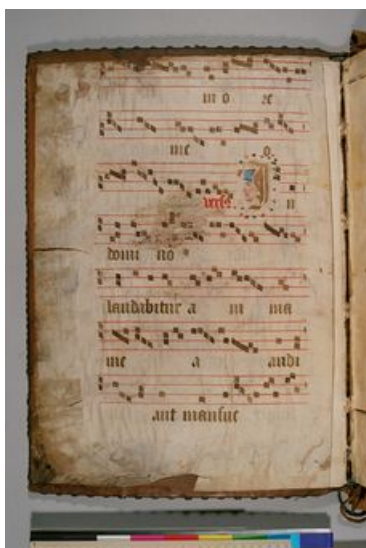 in o re
me o
vers I n
domi no
laudabitur a ni ma
me a audi
ant mansue